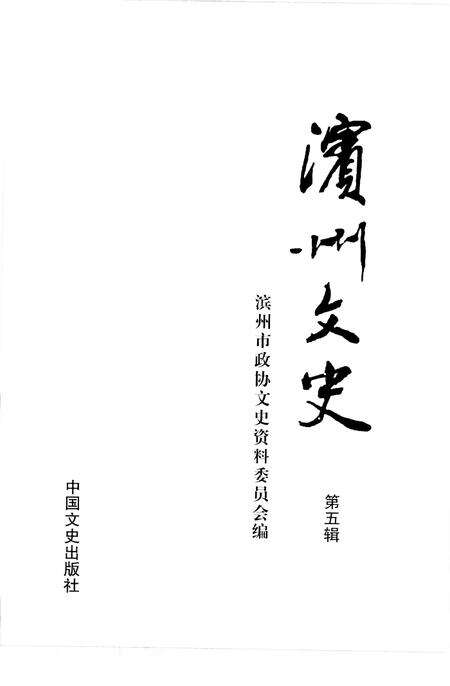 濱州文史
第五辑
滨州市政协文史资料委员会编
中国文史出版社